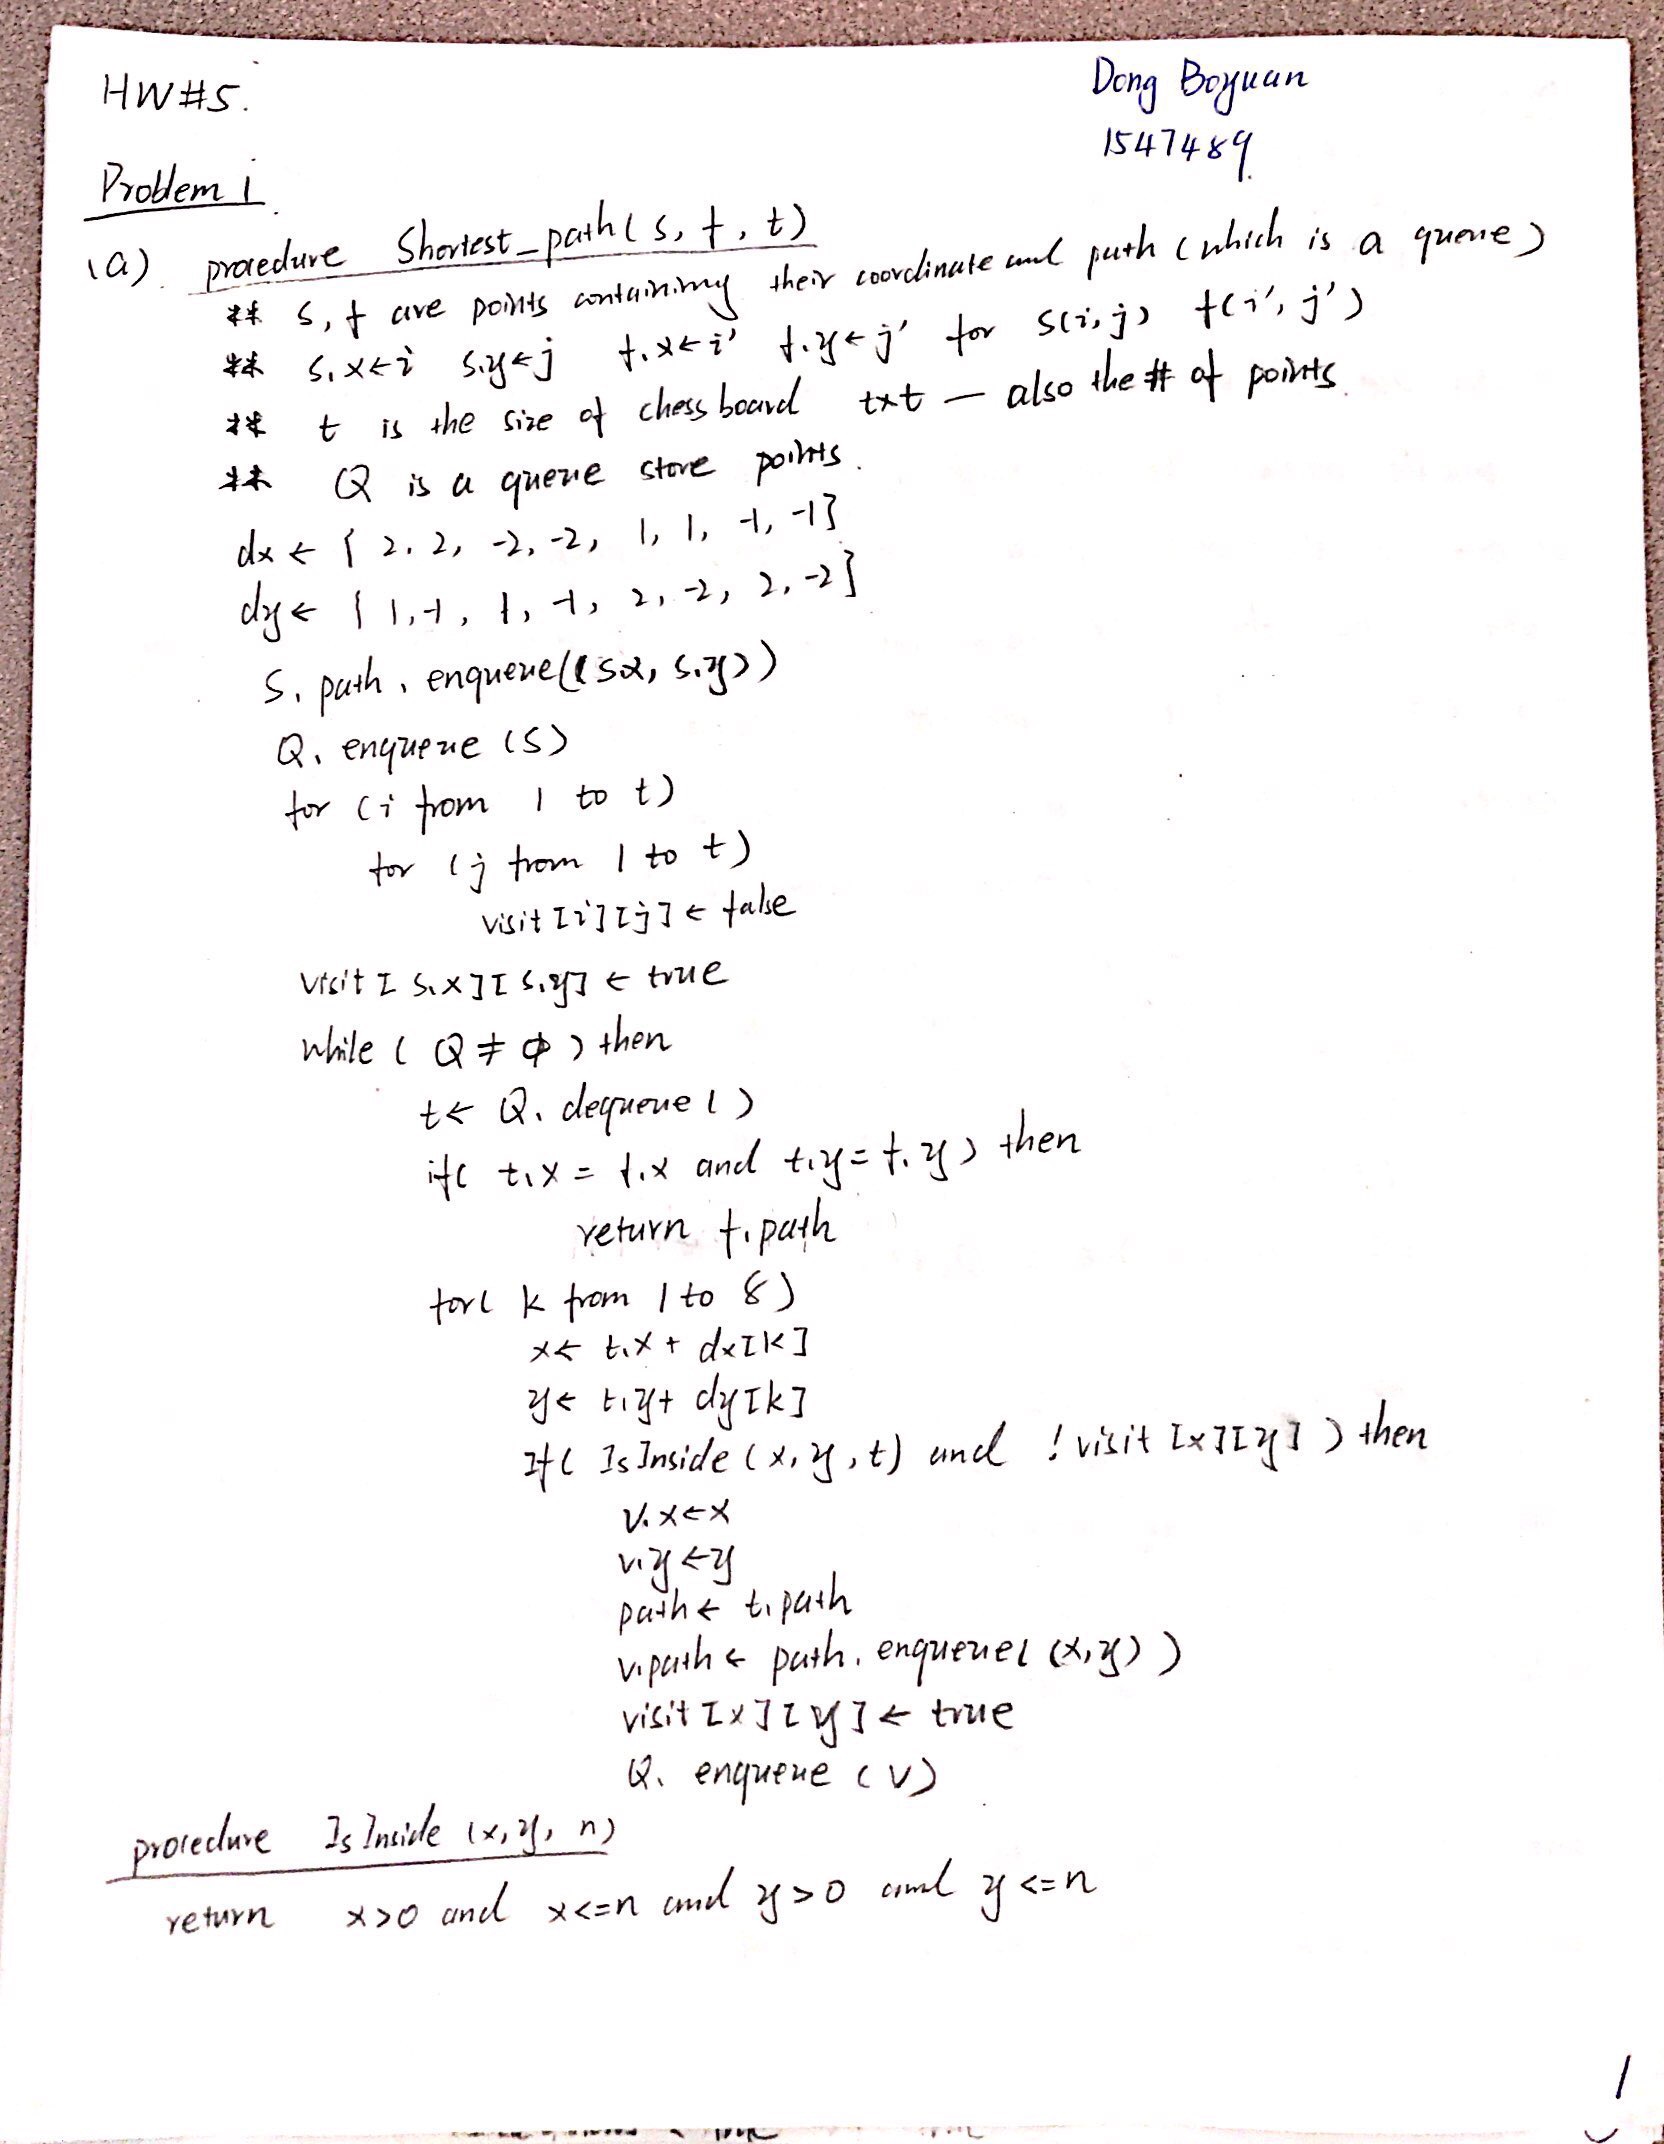 HW#5.
Dong Boyuan
1547489
Problem 1
(a). procedure Shortest_path(s, f, t)
** s, f are points containing their coordinate and path (which is a queue)
** s.x←i s.y←j f.x←i' f.y←j' for s(i,j) f(i',j')
** t is the size of chess board t×t — also the # of points
** Q is a queue store points.
dx ← { 2, 2, -2, -2, 1, 1, -1, -1}
dy ← { 1, -1, 1, -1, 2, -2, 2, -2}
S. path. enqueue((s.x, s.y))
Q. enqueue (S)
for (i from 1 to t)
for (j from 1 to t)
visit[i][j] ← false
visit[s.x][s.y] ← true
while ( Q ≠ ∅ ) then
t← Q. dequeue()
if( t.x = f.x and t.y = f.y ) then
return f.path
for( k from 1 to 8)
x← t.x + dx[k]
y← t.y + dy[k]
If( IsInside (x, y, t) and ! visit [x][y] ) then
v.x←x
v.y←y
path ← t.path
v.path ← path. enqueue( (x,y) )
visit[x][y] ← true
Q. enqueue (v)
procedure IsInside (x, y, n)
return x>0 and x<=n and y>0 and y<=n
1